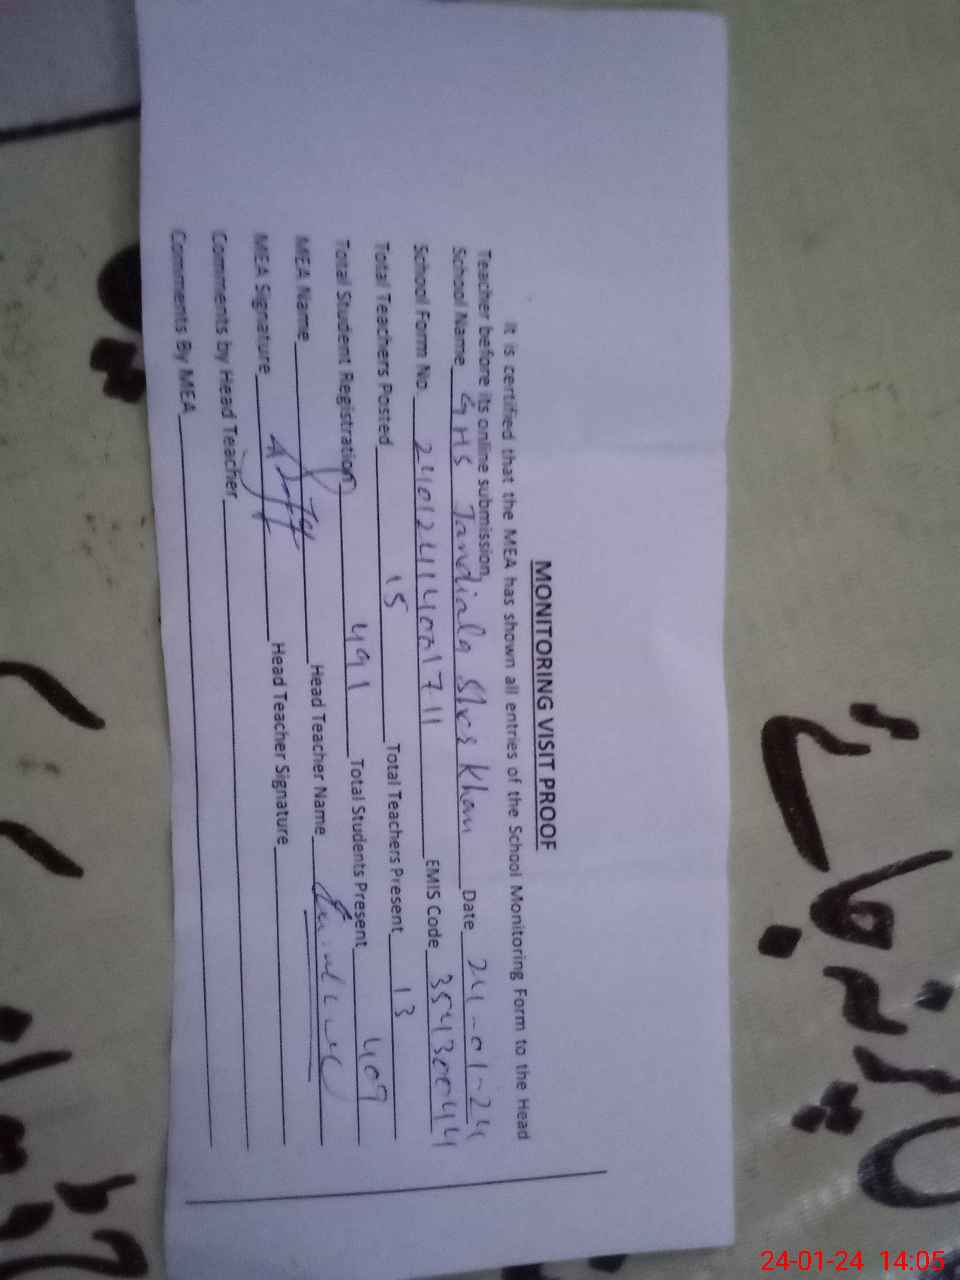 MONITORING VISIT PROOF
It is certified that the MEA has shown all entries of the School Monitoring Form to the Head
Teacher before its online submission.
School Name GHS Jandiala Sher Khan Date 24-01-24
School Form No. 240124114001711 EMIS Code 35430044
Total Teachers Posted 15 Total Teachers Present 13
Total Student Registration 491 Total Students Present 409
MEA Name Head Teacher Name
MEA Signature Head Teacher Signature
Comments by Head Teacher
Comments By MEA
24-01-24 14:05